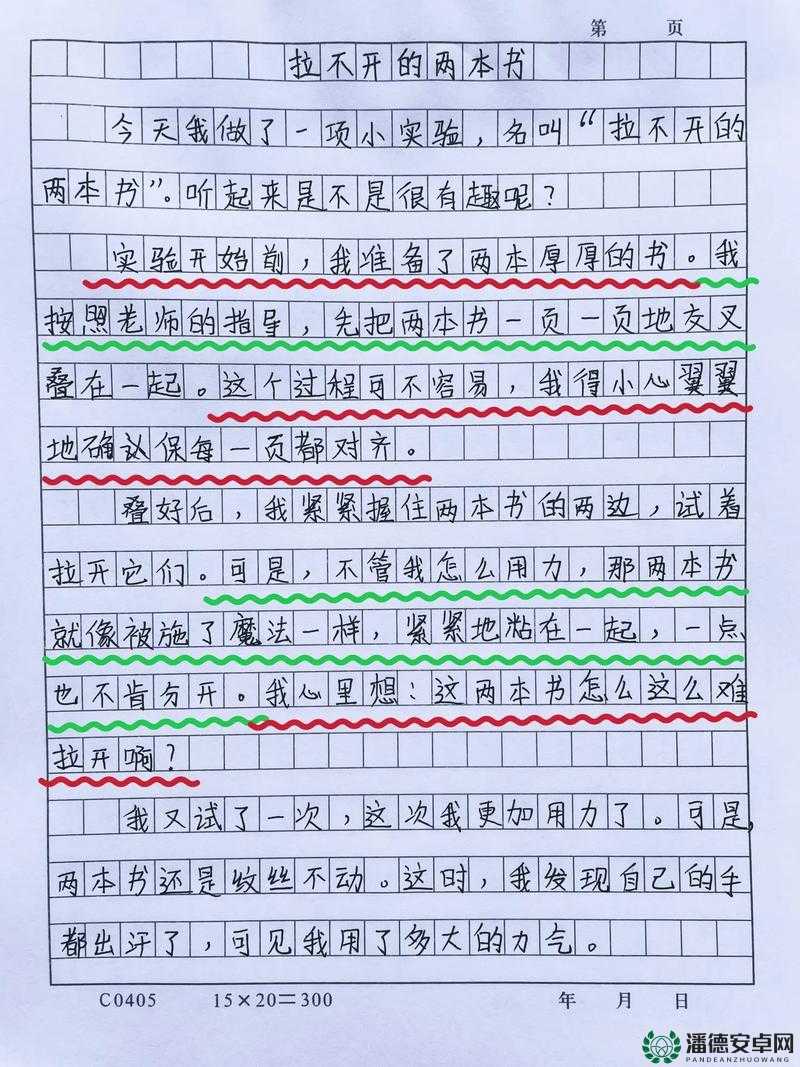 第 页
拉不开的两本书
今天我做了一项小实验，名叫“拉不开的
两本书”。听起来是不是很有趣呢？
实验开始前，我准备了两本厚厚的书。我
按照老师的指导，先把两本书一页一页地交叉
叠在一起。这个过程可不容易，我得小心翼翼
地确认保每一页都对齐。
叠好后，我紧紧握住两本书的两边，试着
拉开它们。可是，不管我怎么用力，那两本书
就像被施了魔法一样，紧紧地粘在一起，一点
也不肯分开。我心里想：这两本书怎么这么难
拉开啊？
我又试了一次，这次我更加用力了。可是，
两本书还是纹丝不动。这时，我发现自己的手
都出汗了，可见我用了多大的力气。
C0405 15×20=300 年 月 日
潘德安卓网
PANDEANZHUOWANG